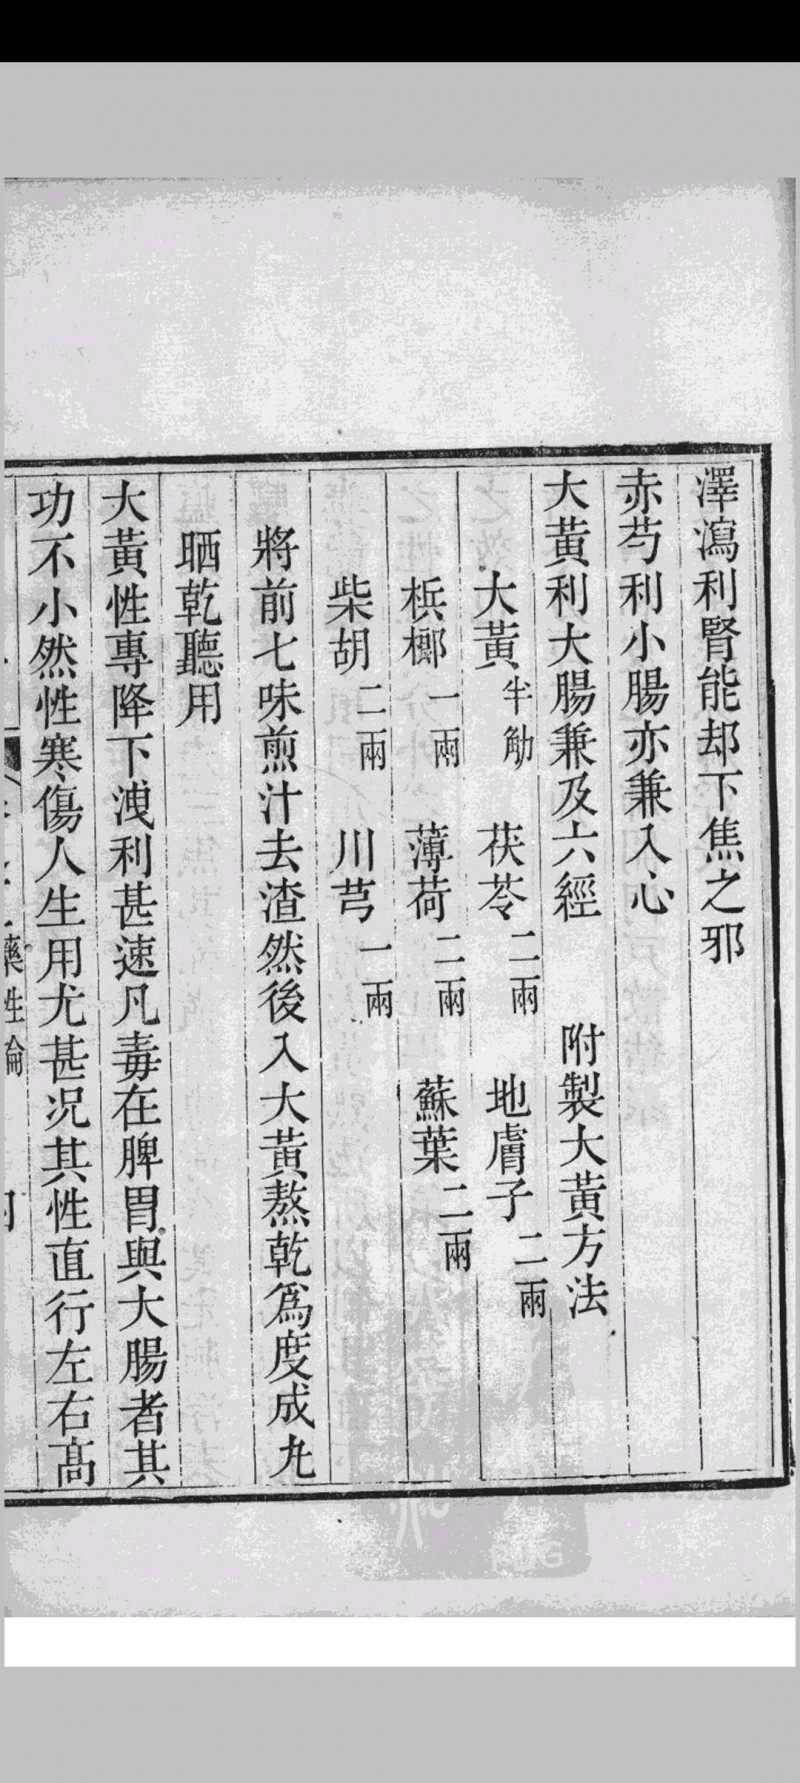 澤瀉利腎能却下焦之邪
赤芍利小腸亦兼入心
大黃利大腸兼及六經　附製大黃方法
大黃半觔　茯苓二兩　地膚子二兩
梹榔一兩　薄荷二兩　蘇葉二兩
柴胡二兩　川芎一兩
將前七味煎汁去渣然後入大黃熬乾爲度成丸
晒乾聽用
大黃性專降下洩利甚速凡毒在脾胃與大腸者其
功不小然性寒傷人生用尤甚况其性直行左右高
藥性論